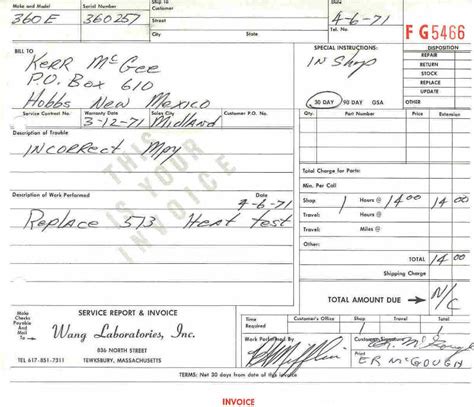 Make and Model Serial Number Ship To Customer Date
360E 360257 4-6-71 FG5466
Tel. No./Ext.
BILL TO SPECIAL INSTRUCTIONS: DISPOSITION
Kerr McGee In Shop REPAIR
RETURN
P.O. Box 610 STOCK
REPLACE
Hobbs New Mexico 30 DAY 90 DAY GSA UPDATE
OTHER
Service Contract No. Warranty Date Sales City Customer P.O. No. Qty. Part Number Price Extension
3-12-71 Midland
Description of Trouble
Incorrect Mpy
THIS IS YOUR INVOICE
Total Charge for Parts:
Min. Per Call
Description of Work Performed Date Shop 1 Hours @ 14 00 14 00
4-6-71 Travel: Hours @
Replace 513 Heat test Travel: Miles @
TOTAL 14 00
Shipping Charge
TOTAL AMOUNT DUE N/C
Make Checks Payable And Mail To SERVICE REPORT & INVOICE
Wang Laboratories, Inc.
836 NORTH STREET
TEL 617-851-7311 TEWKSBURY, MASSACHUSETTS
Time Customer's Office Shop Total
Arrived 1 1
Work Performed By Customer Signature
Print
ER McGOUGH
TERMS: Net 30 days from date of this invoice
INVOICE